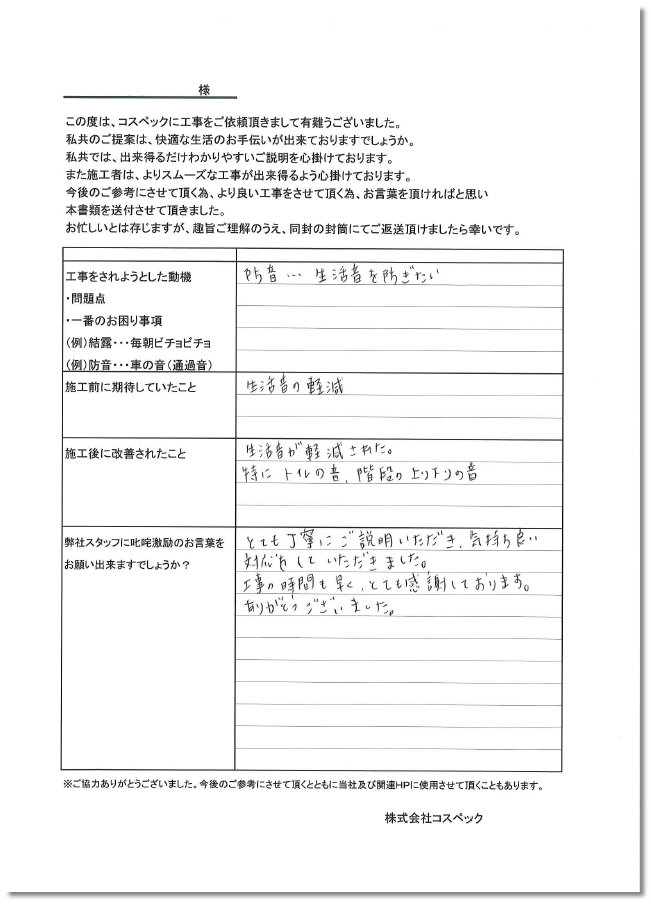 様
この度は、コスペックに工事をご依頼頂きまして有難うございました。
私共のご提案は、快適な生活のお手伝いが出来ておりますでしょうか。
私共では、出来得るだけわかりやすいご説明を心掛けております。
また施工者は、よりスムーズな工事が出来得るよう心掛けております。
今後のご参考にさせて頂く為、より良い工事をさせて頂く為、お言葉を頂ければと思い
本書類を送付させて頂きました。
お忙しいとは存じますが、趣旨ご理解のうえ、同封の封筒にてご返送頂けましたら幸いです。
工事をされようとした動機
・問題点
・一番のお困り事項
(例)結露・・・毎朝ビチョビチョ
(例)防音・・・車の音(通過音)
防音… 生活音を防ぎたい
施工前に期待していたこと
生活音の軽減
施工後に改善されたこと
生活音が軽減された。
特に トイレの音、階段の上り下りの音
弊社スタッフに叱咤激励のお言葉を
お願い出来ますでしょうか?
とても丁寧にご説明いただき、気持ち良い
対応をしていただきました。
工事の時間も早く、とても感謝しております。
ありがとうございました。
※ご協力ありがとうございました。今後のご参考にさせて頂くとともに当社及び関連HPに使用させて頂くこともあります。
株式会社コスペック